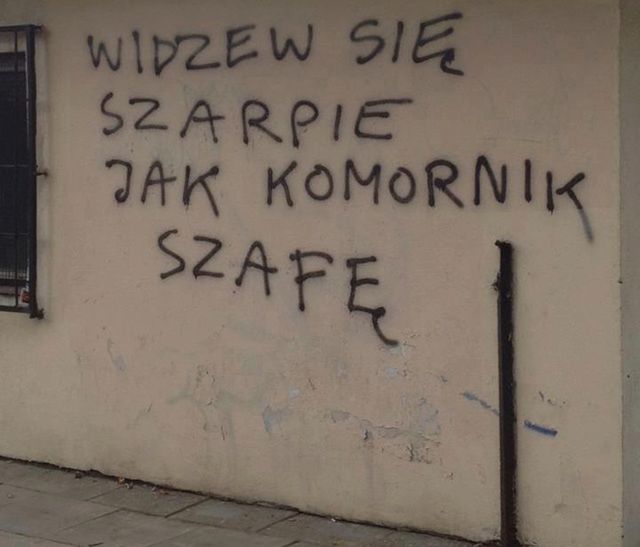 WIDZEW SIĘ
SZARPIE
JAK KOMORNIK
SZAFĘ